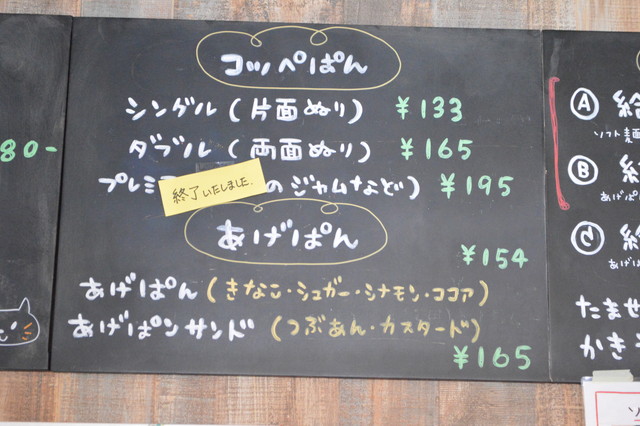 コッペぱん
シングル(片面ぬり) ¥133
ダブル(両面ぬり) ¥165
プレミ
終了いたしました。
のジャムなど) ¥195
あげぱん
¥154
あげぱん(きなこ・シュガー・シナモン・ココア)
あげぱンサンド(つぶあん・カスタード)
¥165
80-
Ⓐ 給
ソフト麺
Ⓑ 給
あげぱ
Ⓒ 給
あげぱ
たませ
かき